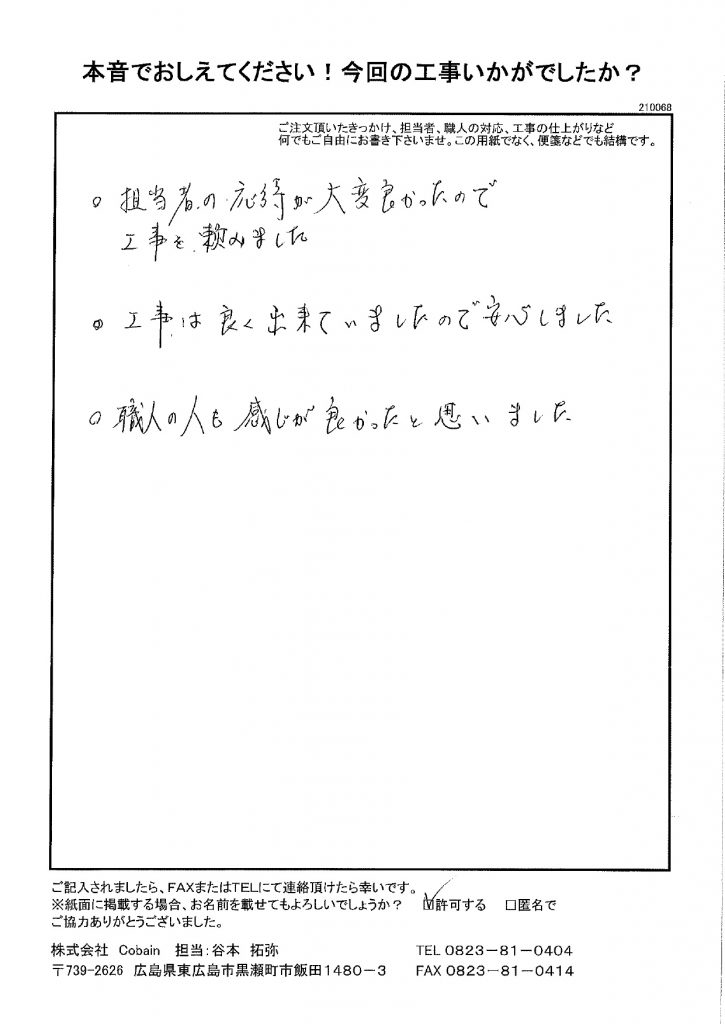 本音でおしえてください！今回の工事いかがでしたか？
210068
ご注文頂いたきっかけ、担当者、職人の対応、工事の仕上がりなど
何でもご自由にお書き下さいませ。この用紙でなく、便箋などでも結構です。
○ 担当者の応待が大変良かったので
工事を頼みました
○ 工事は良く出来ていましたので安心しました
○ 職人の人も感じが良かったと思いました
ご記入されましたら、FAXまたはTELにて連絡頂けたら幸いです。
※紙面に掲載する場合、お名前を載せてもよろしいでしょうか？ ☑許可する □匿名で
ご協力ありがとうございました。
株式会社 Cobain 担当：谷本 拓弥 TEL 0823－81－0404
〒739-2626 広島県東広島市黒瀬町市飯田1480－3 FAX 0823－81－0414